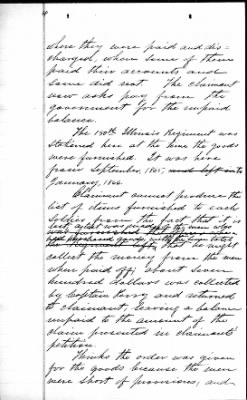 where they were paid and dis-
charged, when some of them
paid their accounts and
some did not. The claimant
now asks pay from the
government for the unpaid
balance.
The 150th Illinois Regiment was
stationed here at the time the goods
were furnished. It was here
from September, 1865, until
January, 1866.
Claimant cannot produce the
list of items furnished to each
soldier from the fact that it is
lost,
that he might
collect the money from the men
when paid off; about seven
hundred dollars was collected
by Captain and returned
to claimant, leaving a balance
unpaid to the amount of the
claim presented in claimants'
petition.
Thinks the order was given
for the goods because the men
were short of provisions, and